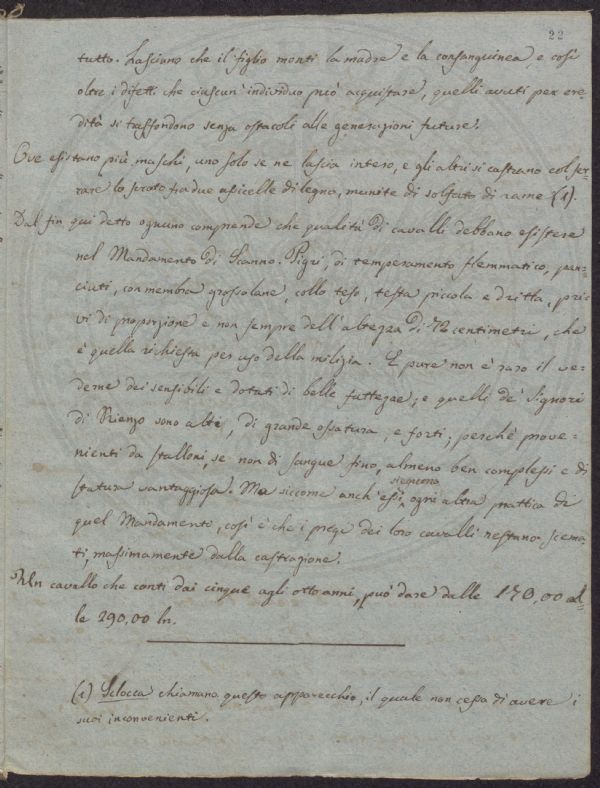 22
tutto. Lasciano che il figlio monti la madre e la consanguinea, e così
oltre i difetti che ciascun individuo può acquistare, quelli avuti per ere-
dità si trasfondono senza ostacoli alle generazioni future.
Ove esistano più maschi, uno solo se ne lascia intero, e gli altri si castrano col ser-
rare lo scroto fra due asicelle di legno, munite di solfato di rame (1).
Dal fin qui detto ognuno comprende che qualità di cavalli debbano esistere
nel Mandamento di Scanno. Pigri, di temperamento flemmatico, pan-
ciuti, con membra grossolane, collo teso, testa piccola e dritta, pri-
vi di proporzione e non sempre dell'altezza di 72 centimetri, che
è quella richiesta per uso della milizia. E pure non è raro il ve-
derne dei sensibili e dotati di belle fattezze; e quelli de' Signori
di Rienzo sono alti, di grande ossatura, e forti; perchè prove-
nienti da stalloni, se non di sangue fino, almeno ben complessi e di
statura vantaggiosa. Ma siccome anch'essi sieguono ogni altra prattica di
quel Mandamento, così è che i pregi dei loro cavalli restano scema-
ti, massimamente dalla castrazione.
Un cavallo che conti dai cinque agli otto anni, può dare dalle 170,00 al-
le 290,00 ln.
(1) Sclocca chiamano questo apparecchio, il quale non cessa di avere i
suoi inconvenienti.